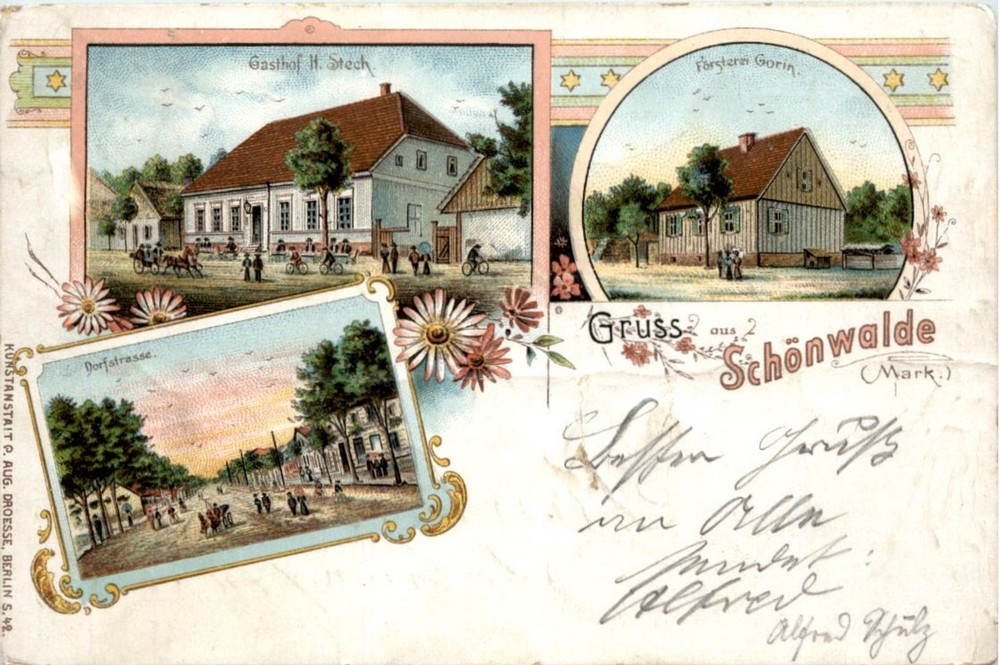 Gasthof H. Stech.
Försterei Gorin.
Dorfstrasse.
Gruss aus
Schönwalde
(Mark.)
Besten Gruß
an Alle
sendet
Alfred
Alfred Schulz
KUNSTANSTALT P. AUG. DROESSE, BERLIN S. 42.